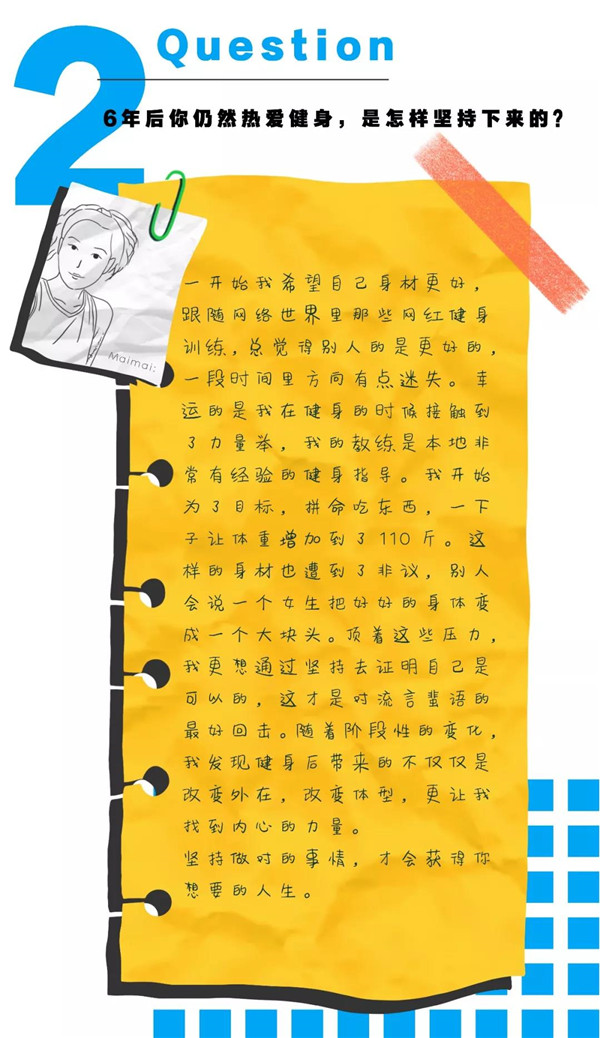 2
Question
6年后你仍然热爱健身，是怎样坚持下来的？
Maimai:
一开始我希望自己身材更好，
跟随网络世界里那些网红健身
训练，总觉得别人的是更好的，
一段时间里方向有点迷失。幸
运的是我在健身的时候接触到
了力量举，我的教练是本地非
常有经验的健身指导。我开始
为了目标，拼命吃东西，一下
子让体重增加到了 110 斤。这
样的身材也遭到了非议，别人
会说一个女生把好好的身体变
成一个大块头。顶着这些压力，
我更想通过坚持去证明自己是
可以的，这才是对流言蜚语的
最好回击。随着阶段性的变化，
我发现健身后带来的不仅仅是
改变外在，改变体型，更让我
找到内心的力量。
坚持做对的事情，才会获得你
想要的人生。